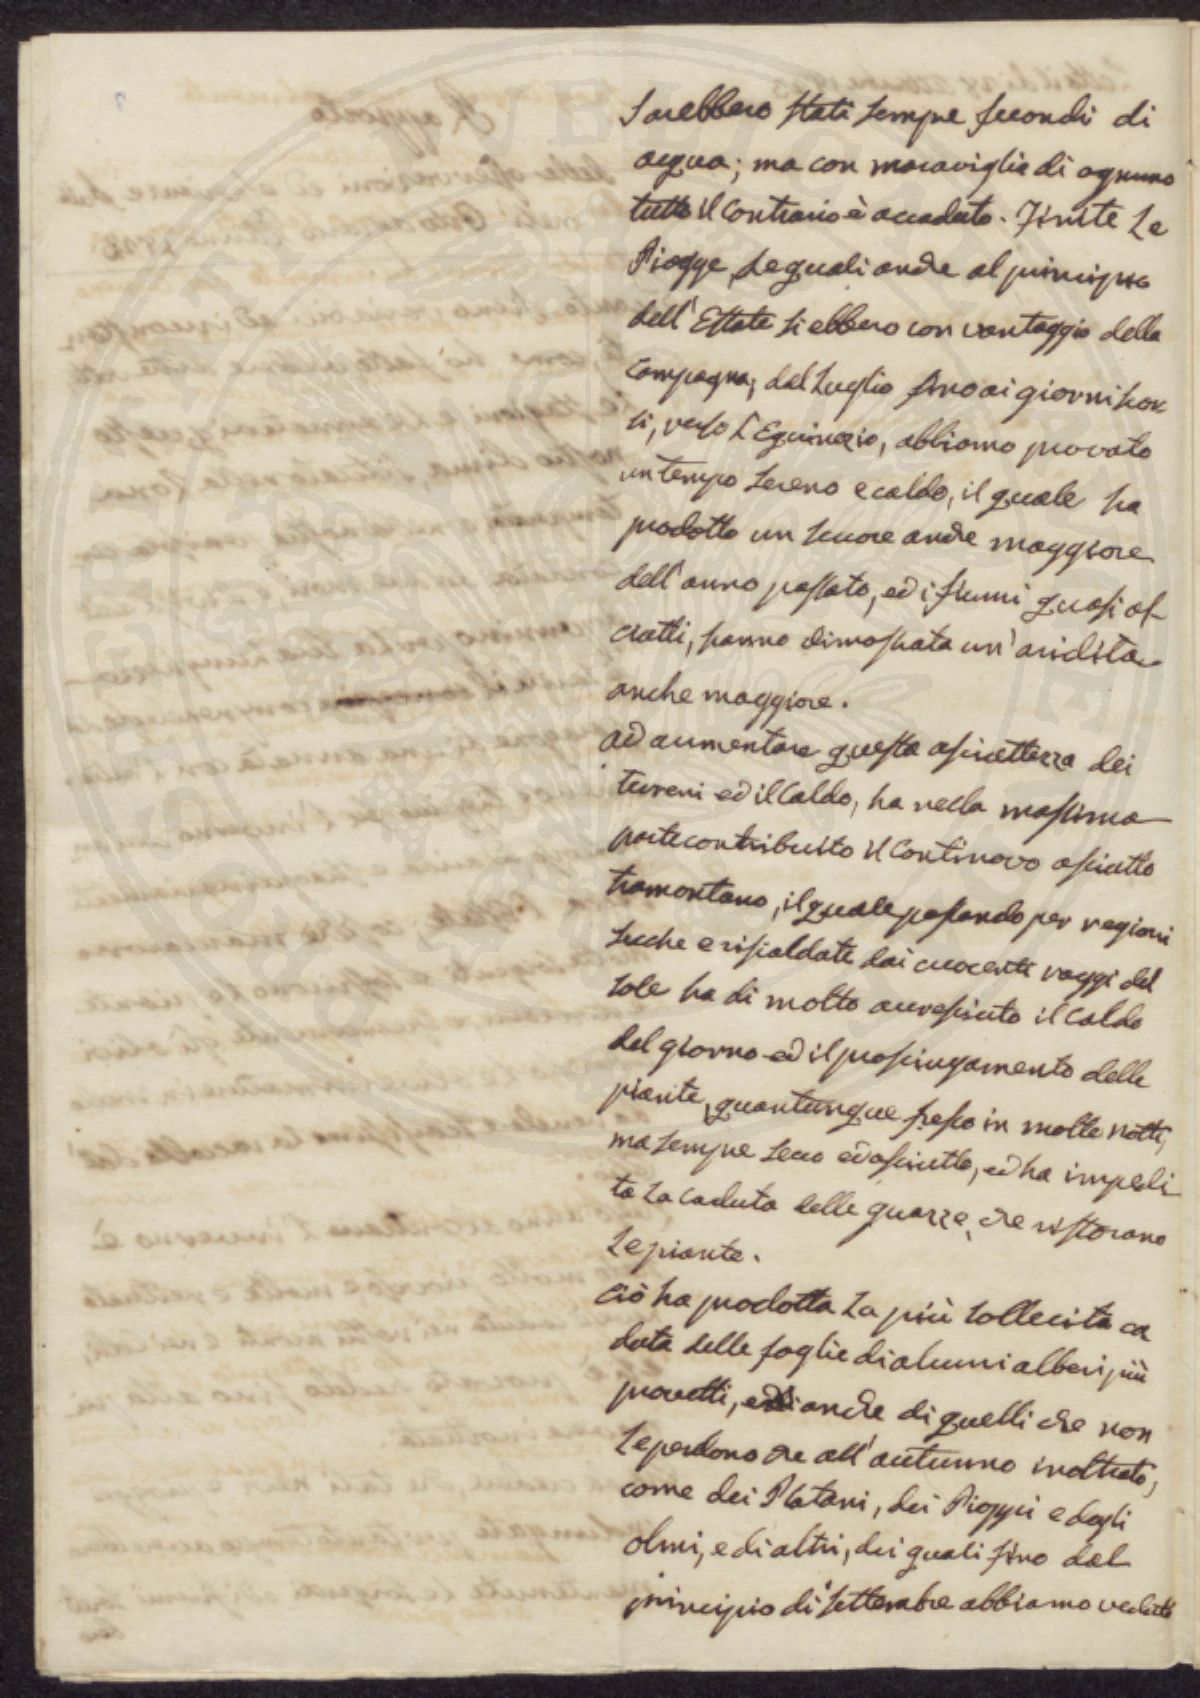 Sarebbero stati sempre fecondi di
acqua; ma con maraviglia di ognuno
tutto il contrario è accaduto. Finite le
Piogge, le quali anche al principio
dell'Estate si ebbero con vantaggio della
Campagna, dal Luglio fino ai giorni scor
si, verso l'Equinozio, abbiamo provato
un tempo sereno e caldo, il quale ha
prodotto un seccore anche maggiore
dell'anno passato, ed i fiumi quasi as-
ciutti, hanno dimostrata un'aridità
anche maggiore.
ad aumentare questa asciuttezza dei
terreni ed il Caldo, ha nella massima
parte contribuito il continovo asciutto
tramontano, il quale passando per regioni
secche e riscaldate dai cuocenti raggi del
sole ha di molto accresciuto il Caldo
del giorno ed il prosciugamento delle
piante, quantunque fresco in molte notti,
ma sempre secco ed asciutto, ed ha impedi
ta la caduta delle guazze, che ristorano
le piante.
Ciò ha prodotta la più sollecita ca
duta delle foglie di alcuni alberi più
provetti, ed anche di quelli che non
le perdono che all'autunno inoltrato,
come dei Platani, dei Pioppi e degli
olmi, e di altri, dei quali fino dal
principio di Settembre abbiamo veduto